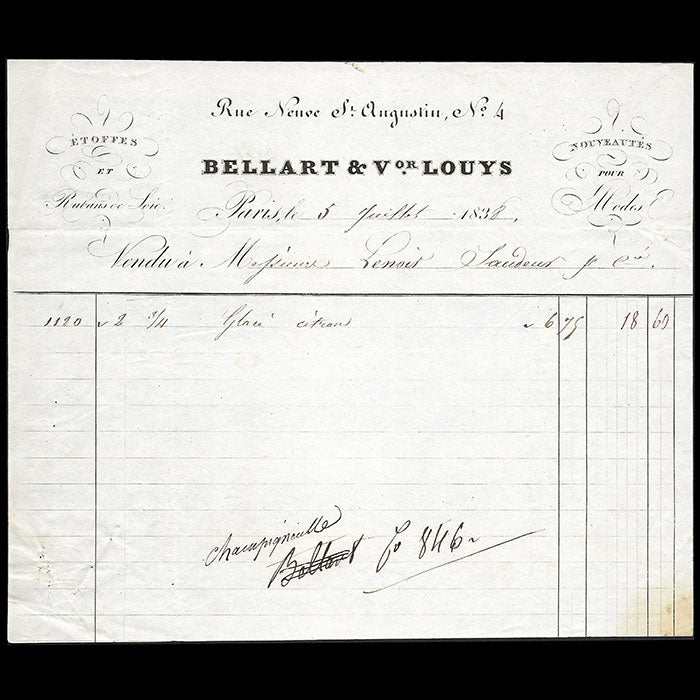 Rue Neuve St. Augustin, No. 4
ÉTOFFES
ET
Rubans de Soie.
BELLART & VOR. LOUYS
NOUVEAUTÉS
POUR
Modes
Paris, le 5 Juillet 1838.
Vendu à Messieurs Lenoir
1120 2 3/4 Glacé citron 6 75 18 60
champigneulle
Bellart fo 846